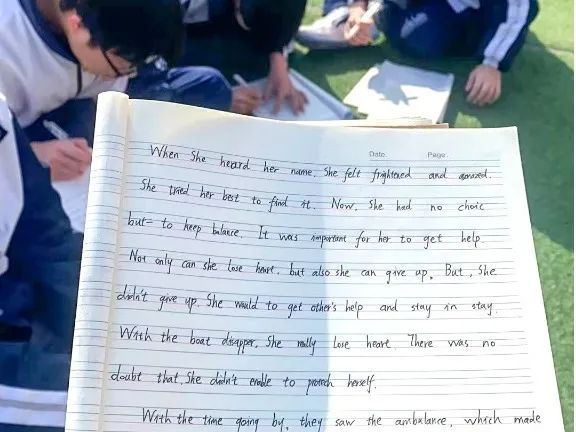 Date. Page.
When She heard her name. She felt frightened and amazed.
She tried her best to find it. Now, She had no choic
but to keep balance. It was important for her to get help
Not only can she lose heart, but also she can give up. But, She
didn't give up. She would to get other's help and stay in stay.
With the boat disapper, She really lose heart. There was no
doubt that, She didn't enable to protech herself.
With the time going by, they saw the ambalance, which made